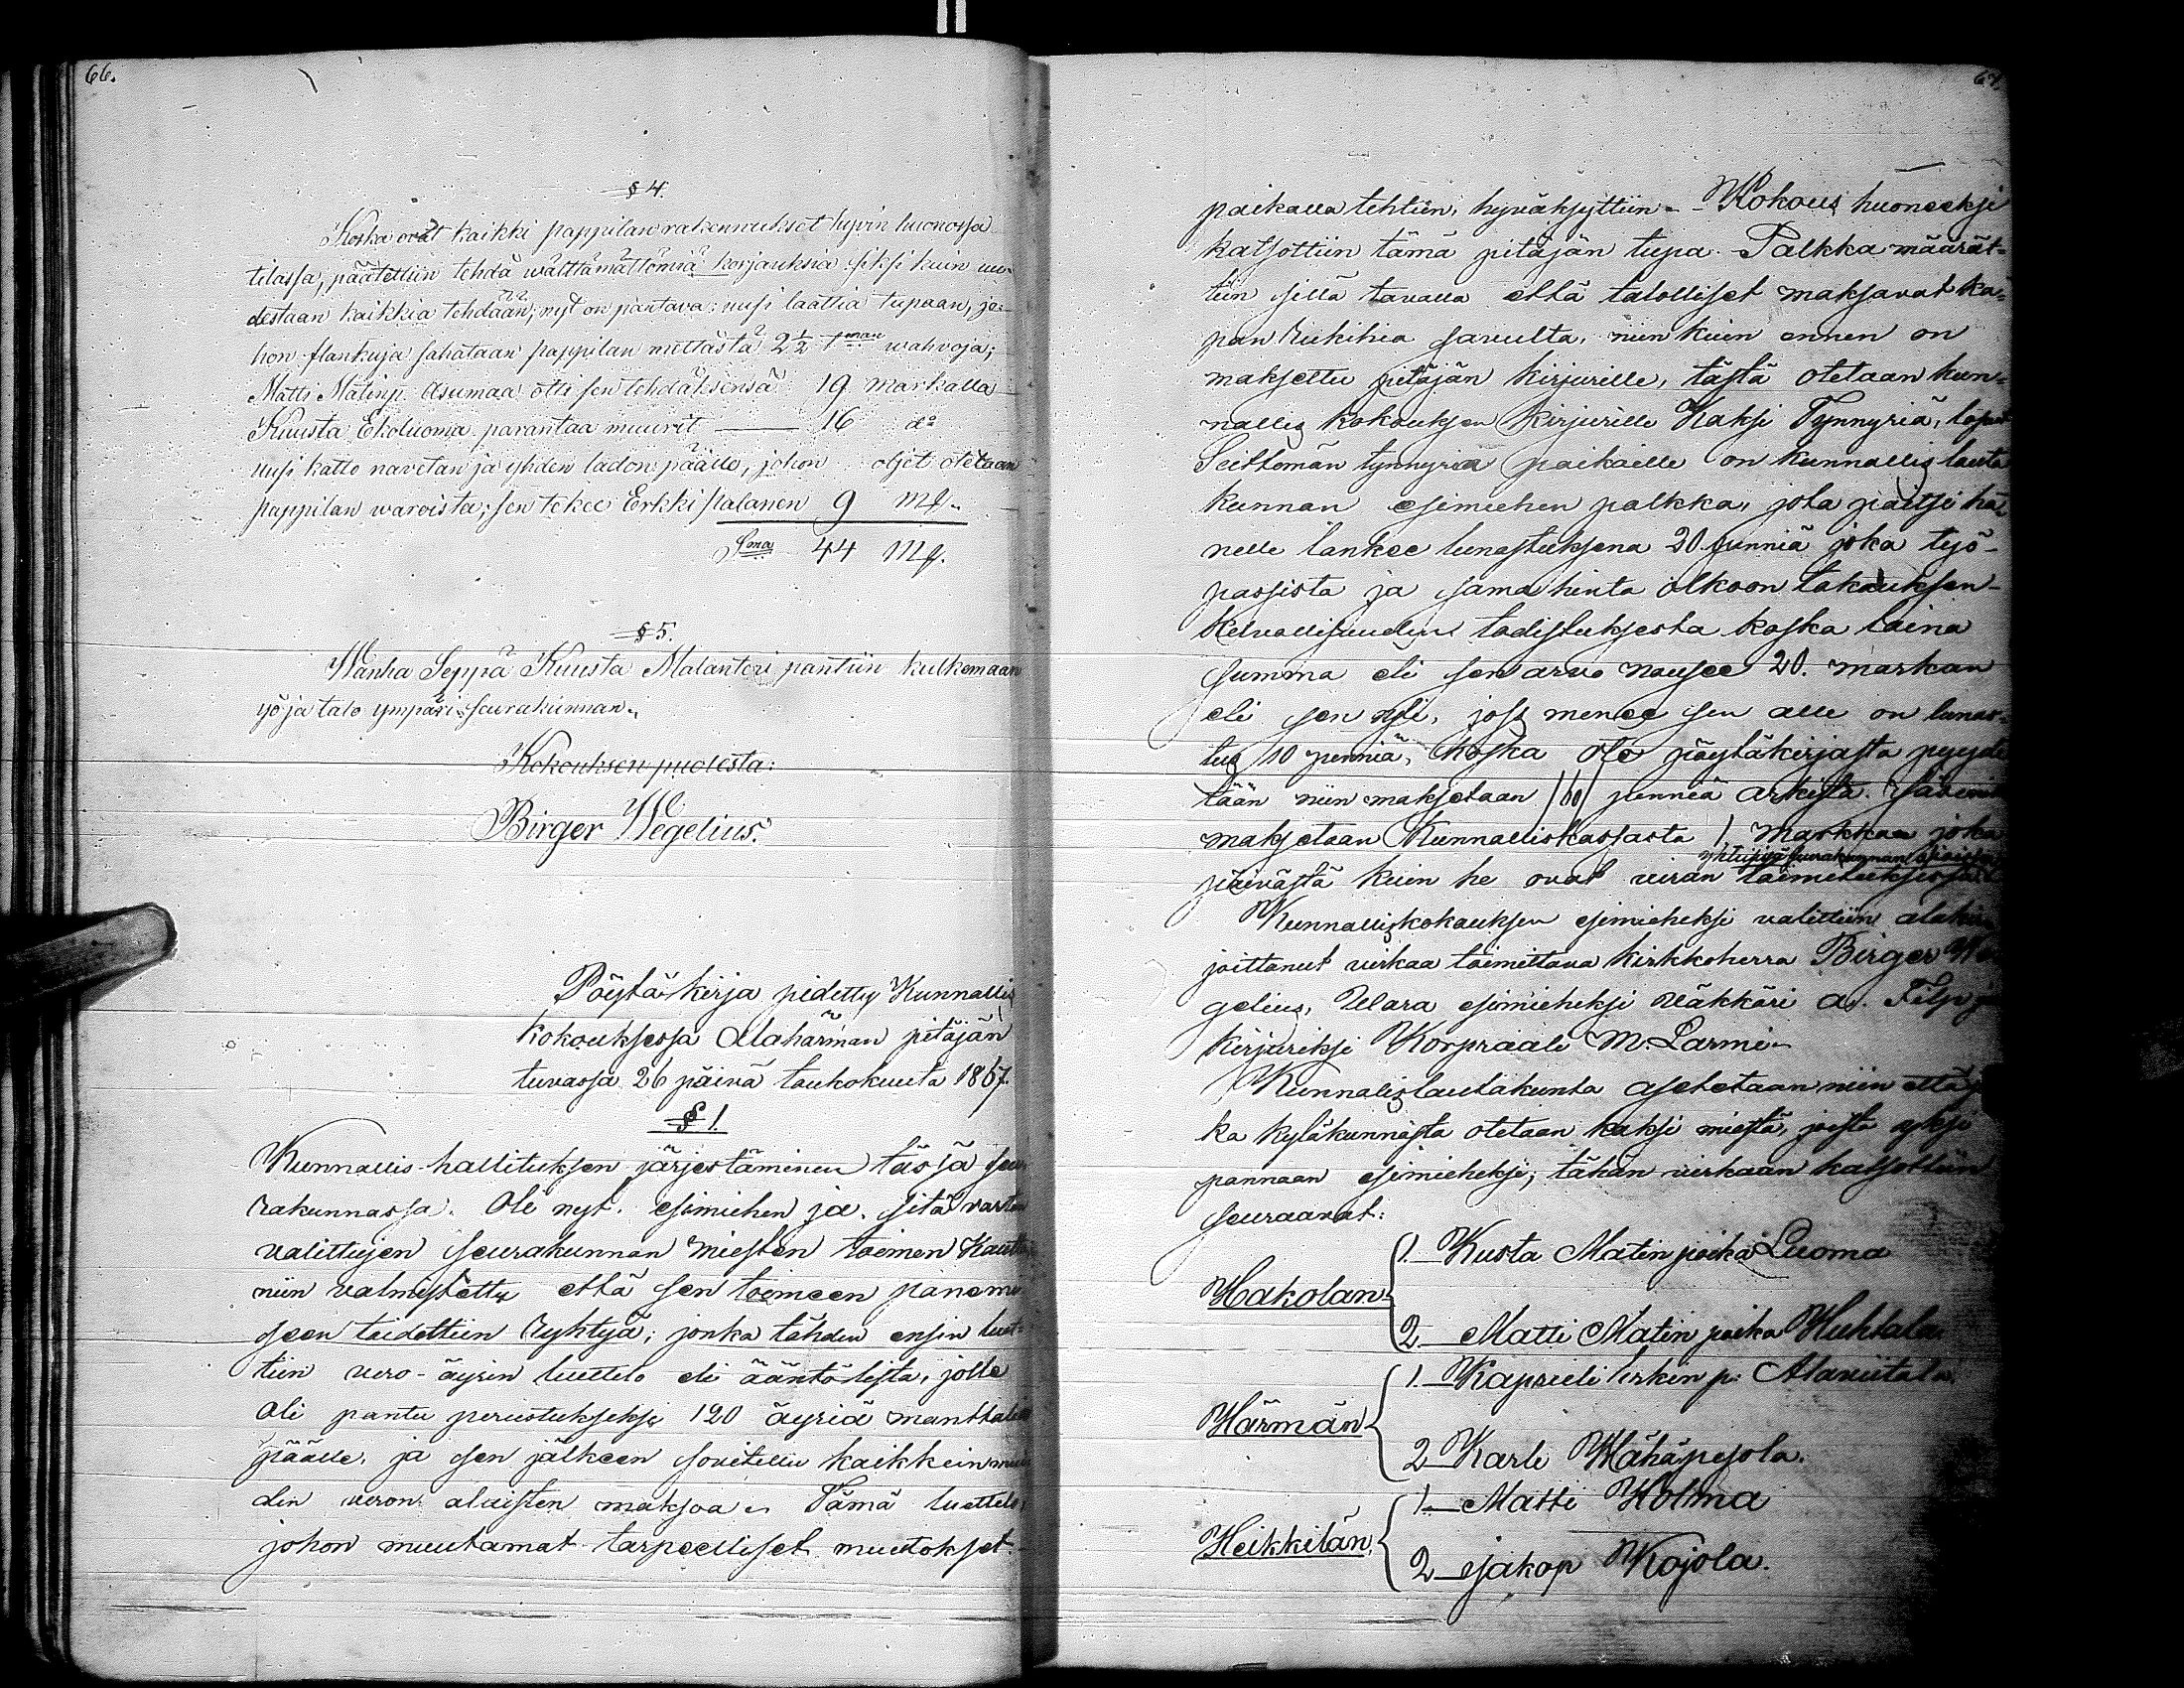 66.
§ 4.
Koska ovat kaikki pappilan rakennukset hyvin huonossa
tilassa, päätettiin tehdä wälttämättömiä korjauksia siksi kuin uu-
destaan kaikkia tehdään; nyt on pantava: uusi laattia tupaan, jo-
hon flankuja sahataan pappilan mettästä 2 1/2 tman wahvoja;
Matti Matinp. Asumaa otti sen tehdäksensä 19 markalla
Kuusta Ekoluoma parantaa muurit — 16 do
uusi katto navetan ja yhden ladon päälle, johon oljet otetaan
pappilan waroista; sen tekee Erkki Palanen 9 mk.
Sma 44 Mk.
§ 5.
Wanha Seppä Kuusta Malanteri pantiin kulkemaan
yö ja talo ympäri seurakunnan.
Kokouksen puolesta:
Birger Wegelius.
Pöytäkirja pidetty Kunnallis
kokouksessa Alahärmän pitäjän
tuvassa 26 päivä toukokuuta 1867.
§ 1.
Kunnallis-hallituksen järjestäminen tässä seu-
rakunnassa. Oli nyt. esimiehen ja. sitä varten
valittujen seurakunnan miesten toimen Kautta
niin valmistettu että sen toimeen panemi
seen taidettiin ryhtyä; jonka tähden ensin luet-
tiin vero-äyrin luettelo eli ääntölista, jolle
oli pantu perustukseksi 120 äyriä manttalin
päälle, ja sen jälkeen soviteltu kaikkein mui
den veron alaisten maksoa. Tämä luettelo,
johon muutamat tarpeelliset muutokset
67.
paikalla tehtiin, hyväksyttiin. - Kokous huoneeksi
katsottiin tämä pitäjän tupa. Palkka määrät-
tiin sillä tavalla että talolliset maksavat ka-
pan rukihia savulta, niin kuin ennen on
maksettu pitäjän kirjurille, tästä otetaan kun-
nallis kokouksen kirjurille Kaksi Tynnyriä, loput
Seittemän tynnyriä paikoille on kunnallis lauta
kunnan esimiehen palkka, jota paitsi hä-
nelle lankee lunastuksena 20 penniä joka työ-
passista ja sama hinta olkoon takauksen-
kelvollisuuden todistuksesta koska laina
summa eli sen arvo nousee 20. markan
eli sen yli, jos menee sen alle on lunas-
tus 10 penniä, koska ote pöytäkirjasta pyyde
tään niin maksetaan /60/ penniä arkista.
maksetaan Kunnalliskassasta 1 Markkaa joka
yhteisissä seurakunnan asioissa
päivästä kuin he ovat viran toimituksissa
Kunnalliskokouksen esimieheksi valittiin allekir
joittanut virkaa toimittava kirkkoherra Birger We
gelius, Wara esimieheksi Wäkkäri A. Filp ja
kirjuriksi Korpraali M. Larmi.
Kunnallislautakunta asetetaan niin että jo
ka kyläkunnasta otetaan kaksi miestä, joista yksi
pannaan esimieheksi; tähän virkaan katsottiin
seuraavat:
Hakolan
1. Kusta Matin poika Luoma
2 Matti Matin poika Huhtala
Härmän
1. Kaprieli Erkin p: Alaviitala
2 Karle Wähäpesola.
Heikkilän
1. Matti Kolma
2 Jakop Kojola.